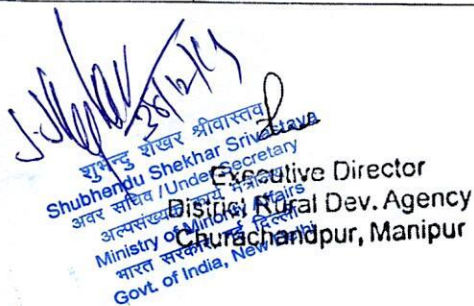 30/12/19
शुभेन्दु शेखर श्रीवास्तव
Shubhendu Shekhar Srivastava
अवर सचिव / Under Secretary
अल्पसंख्यक कार्य मंत्रालय
Ministry of Minority Affairs
भारत सरकार, नई दिल्ली
Govt. of India, New Delhi
Executive Director
District Rural Dev. Agency
Churachandpur, Manipur